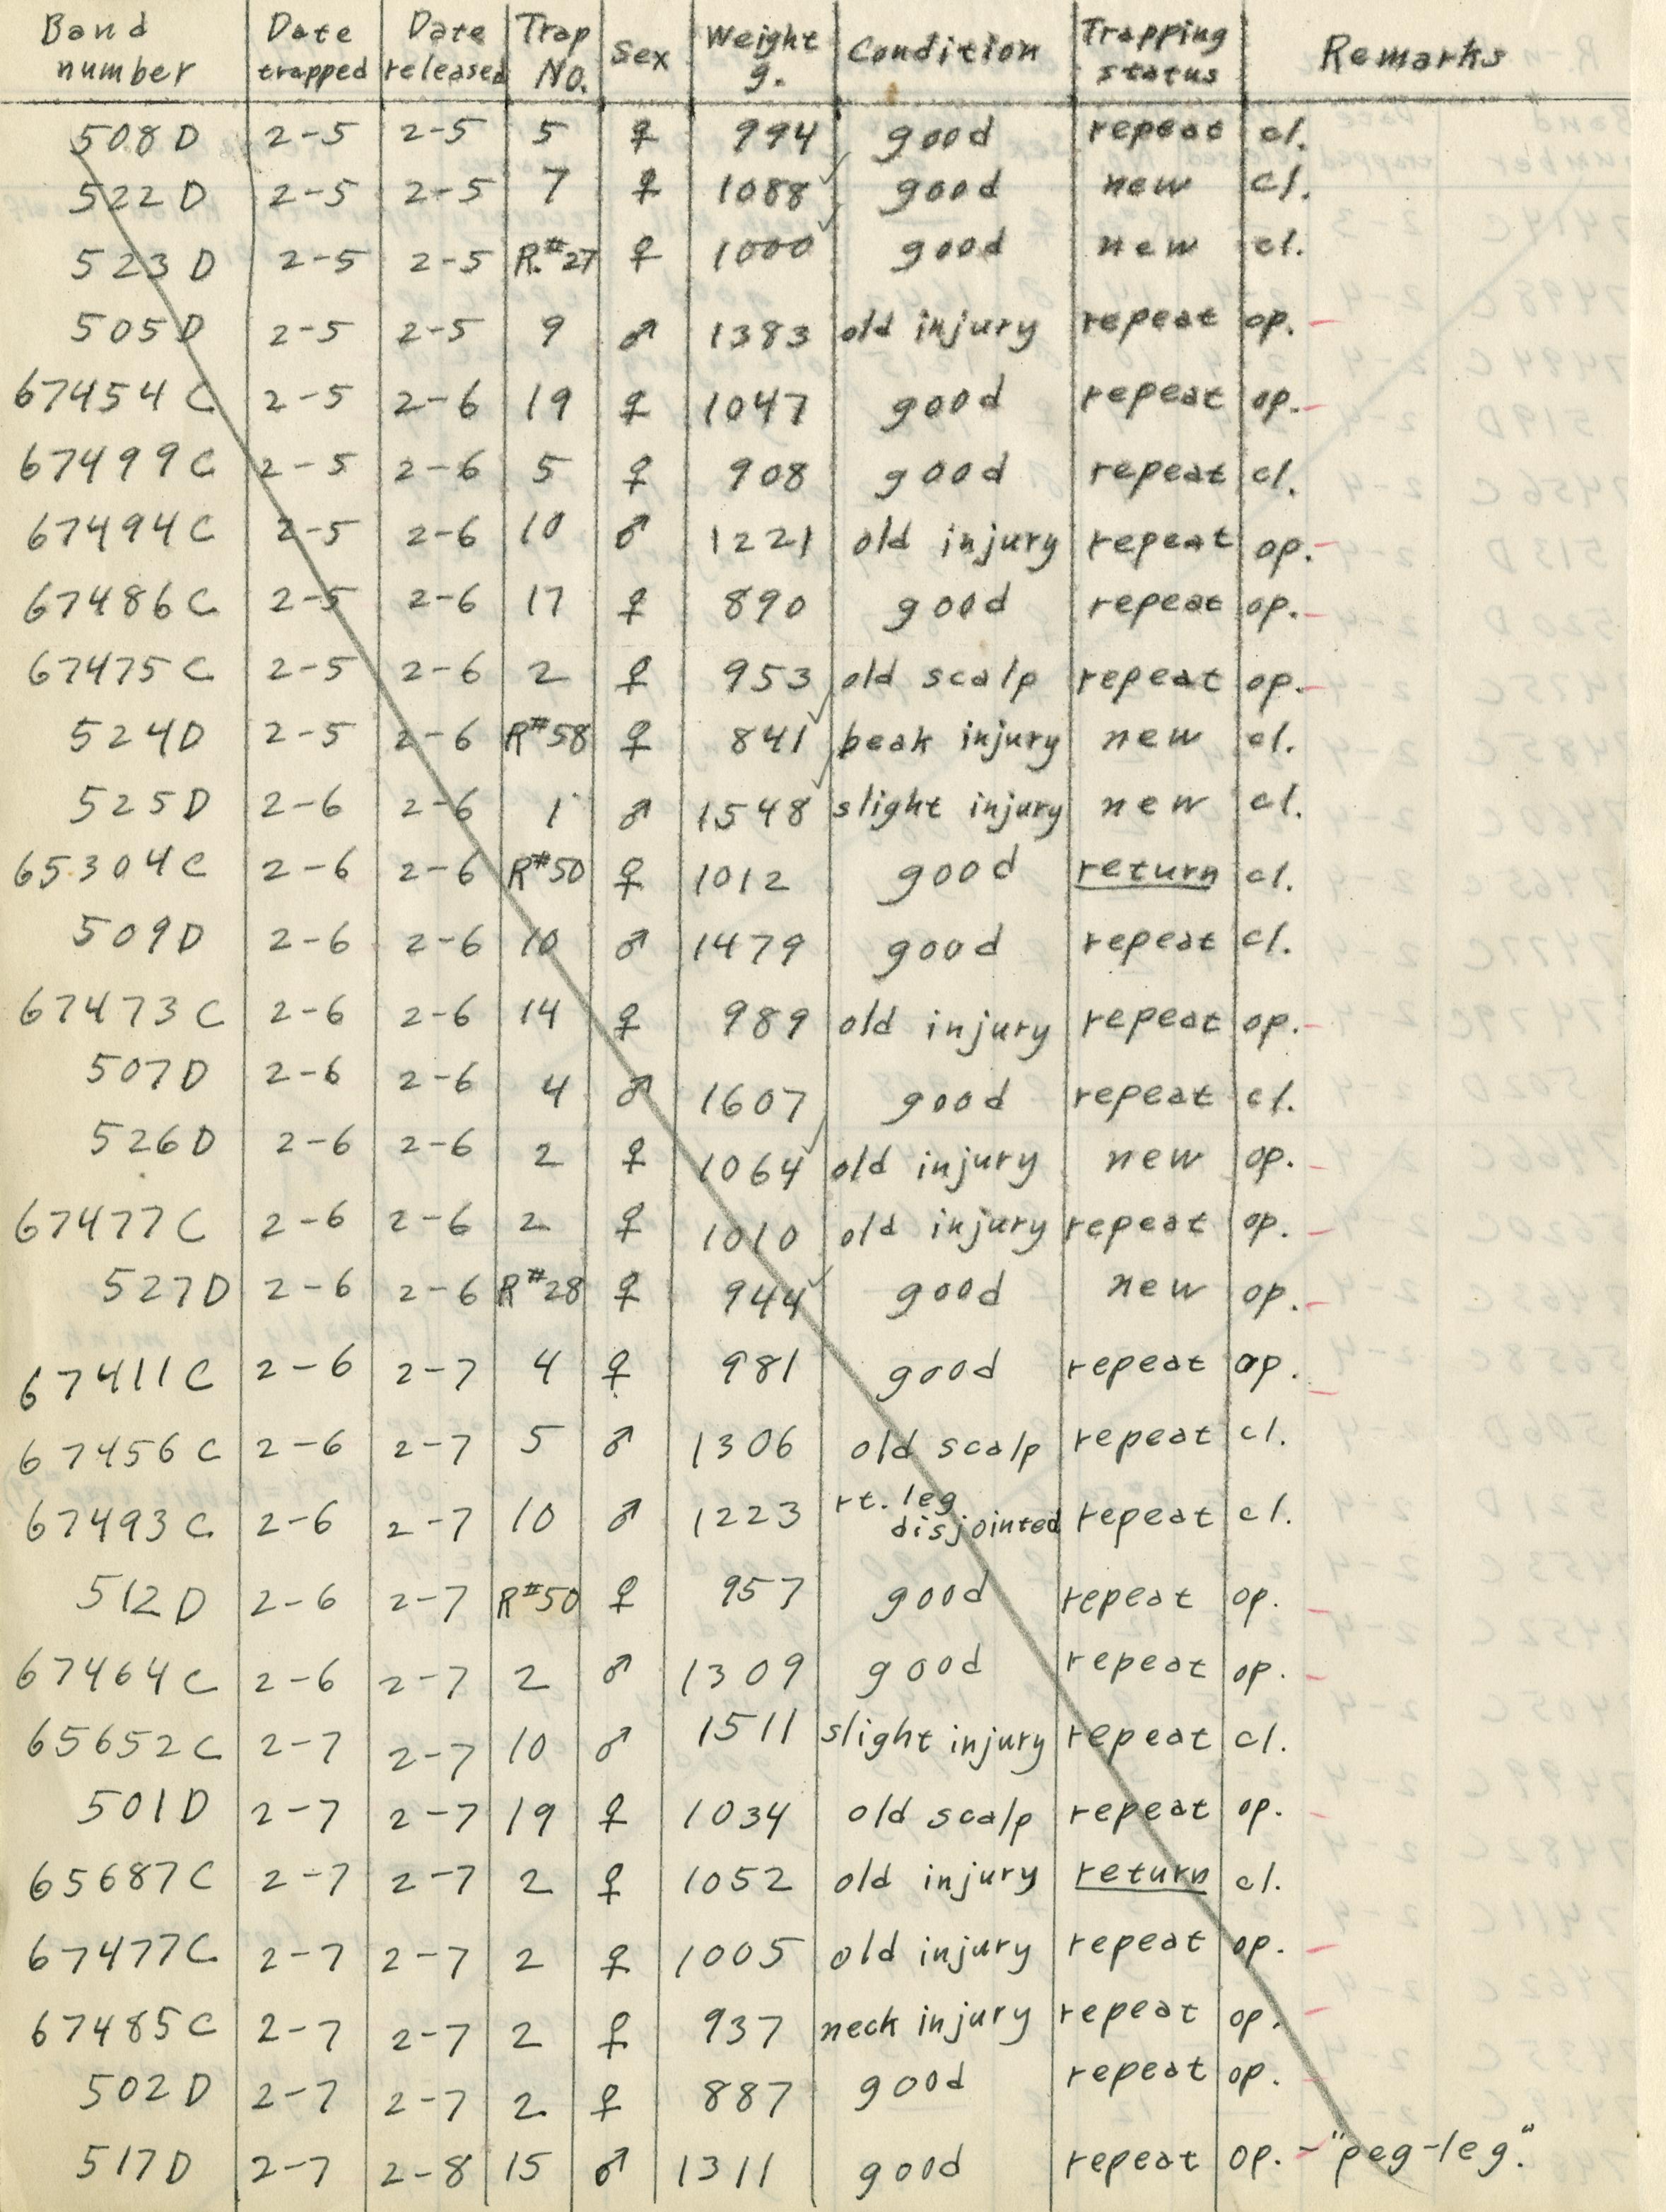 Band number Date trapped Date released Trap No. Sex Weight g. Condition Trapping status Remarks
508D 2-5 2-5 5 ♀ 994 good repeat cl.
522D 2-5 2-5 7 ♀ 1088 ✓ good new cl.
523D 2-5 2-5 R.#27 ♀ 1000 ✓ good new cl.
505D 2-5 2-5 9 ♂ 1383 old injury repeat op. -
67454C 2-5 2-6 19 ♀ 1047 good repeat op. -
67499C 2-5 2-6 5 ♀ 908 good repeat cl.
67494C 2-5 2-6 10 ♂ 1221 old injury repeat op. -
67486C 2-5 2-6 17 ♀ 890 good repeat op. -
67475C 2-5 2-6 2 ♀ 953 old scalp repeat op. -
524D 2-5 2-6 R#58 ♀ 841 ✓ beak injury new cl.
525D 2-6 2-6 1 ♂ 1548 ✓ slight injury new cl.
65304C 2-6 2-6 R#50 ♀ 1012 good return cl.
509D 2-6 2-6 10 ♂ 1479 good repeat cl.
67473C 2-6 2-6 14 ♀ 989 old injury repeat op. -
507D 2-6 2-6 4 ♂ 1607 good repeat cl.
526D 2-6 2-6 2 ♀ 1064 ✓ old injury new op. -
67477C 2-6 2-6 2 ♀ 1010 old injury repeat op. -
527D 2-6 2-6 R#28 ♀ 944 ✓ good new op. -
67411C 2-6 2-7 4 ♀ 981 good repeat op. -
67456C 2-6 2-7 5 ♂ 1306 old scalp repeat cl.
67493C 2-6 2-7 10 ♂ 1223 rt. leg disjointed repeat cl.
512D 2-6 2-7 R#50 ♀ 957 good repeat op. -
67464C 2-6 2-7 2 ♂ 1309 good repeat op. -
65652C 2-7 2-7 10 ♂ 1511 slight injury repeat cl.
501D 2-7 2-7 19 ♀ 1034 old scalp repeat op. -
65687C 2-7 2-7 2 ♀ 1052 old injury return cl.
67477C 2-7 2-7 2 ♀ 1005 old injury repeat op. -
67485C 2-7 2-7 2 ♀ 937 neck injury repeat op. -
502D 2-7 2-7 2 ♀ 887 good repeat op. -
517D 2-7 2-8 15 ♂ 1311 good repeat op. - "peg-leg."